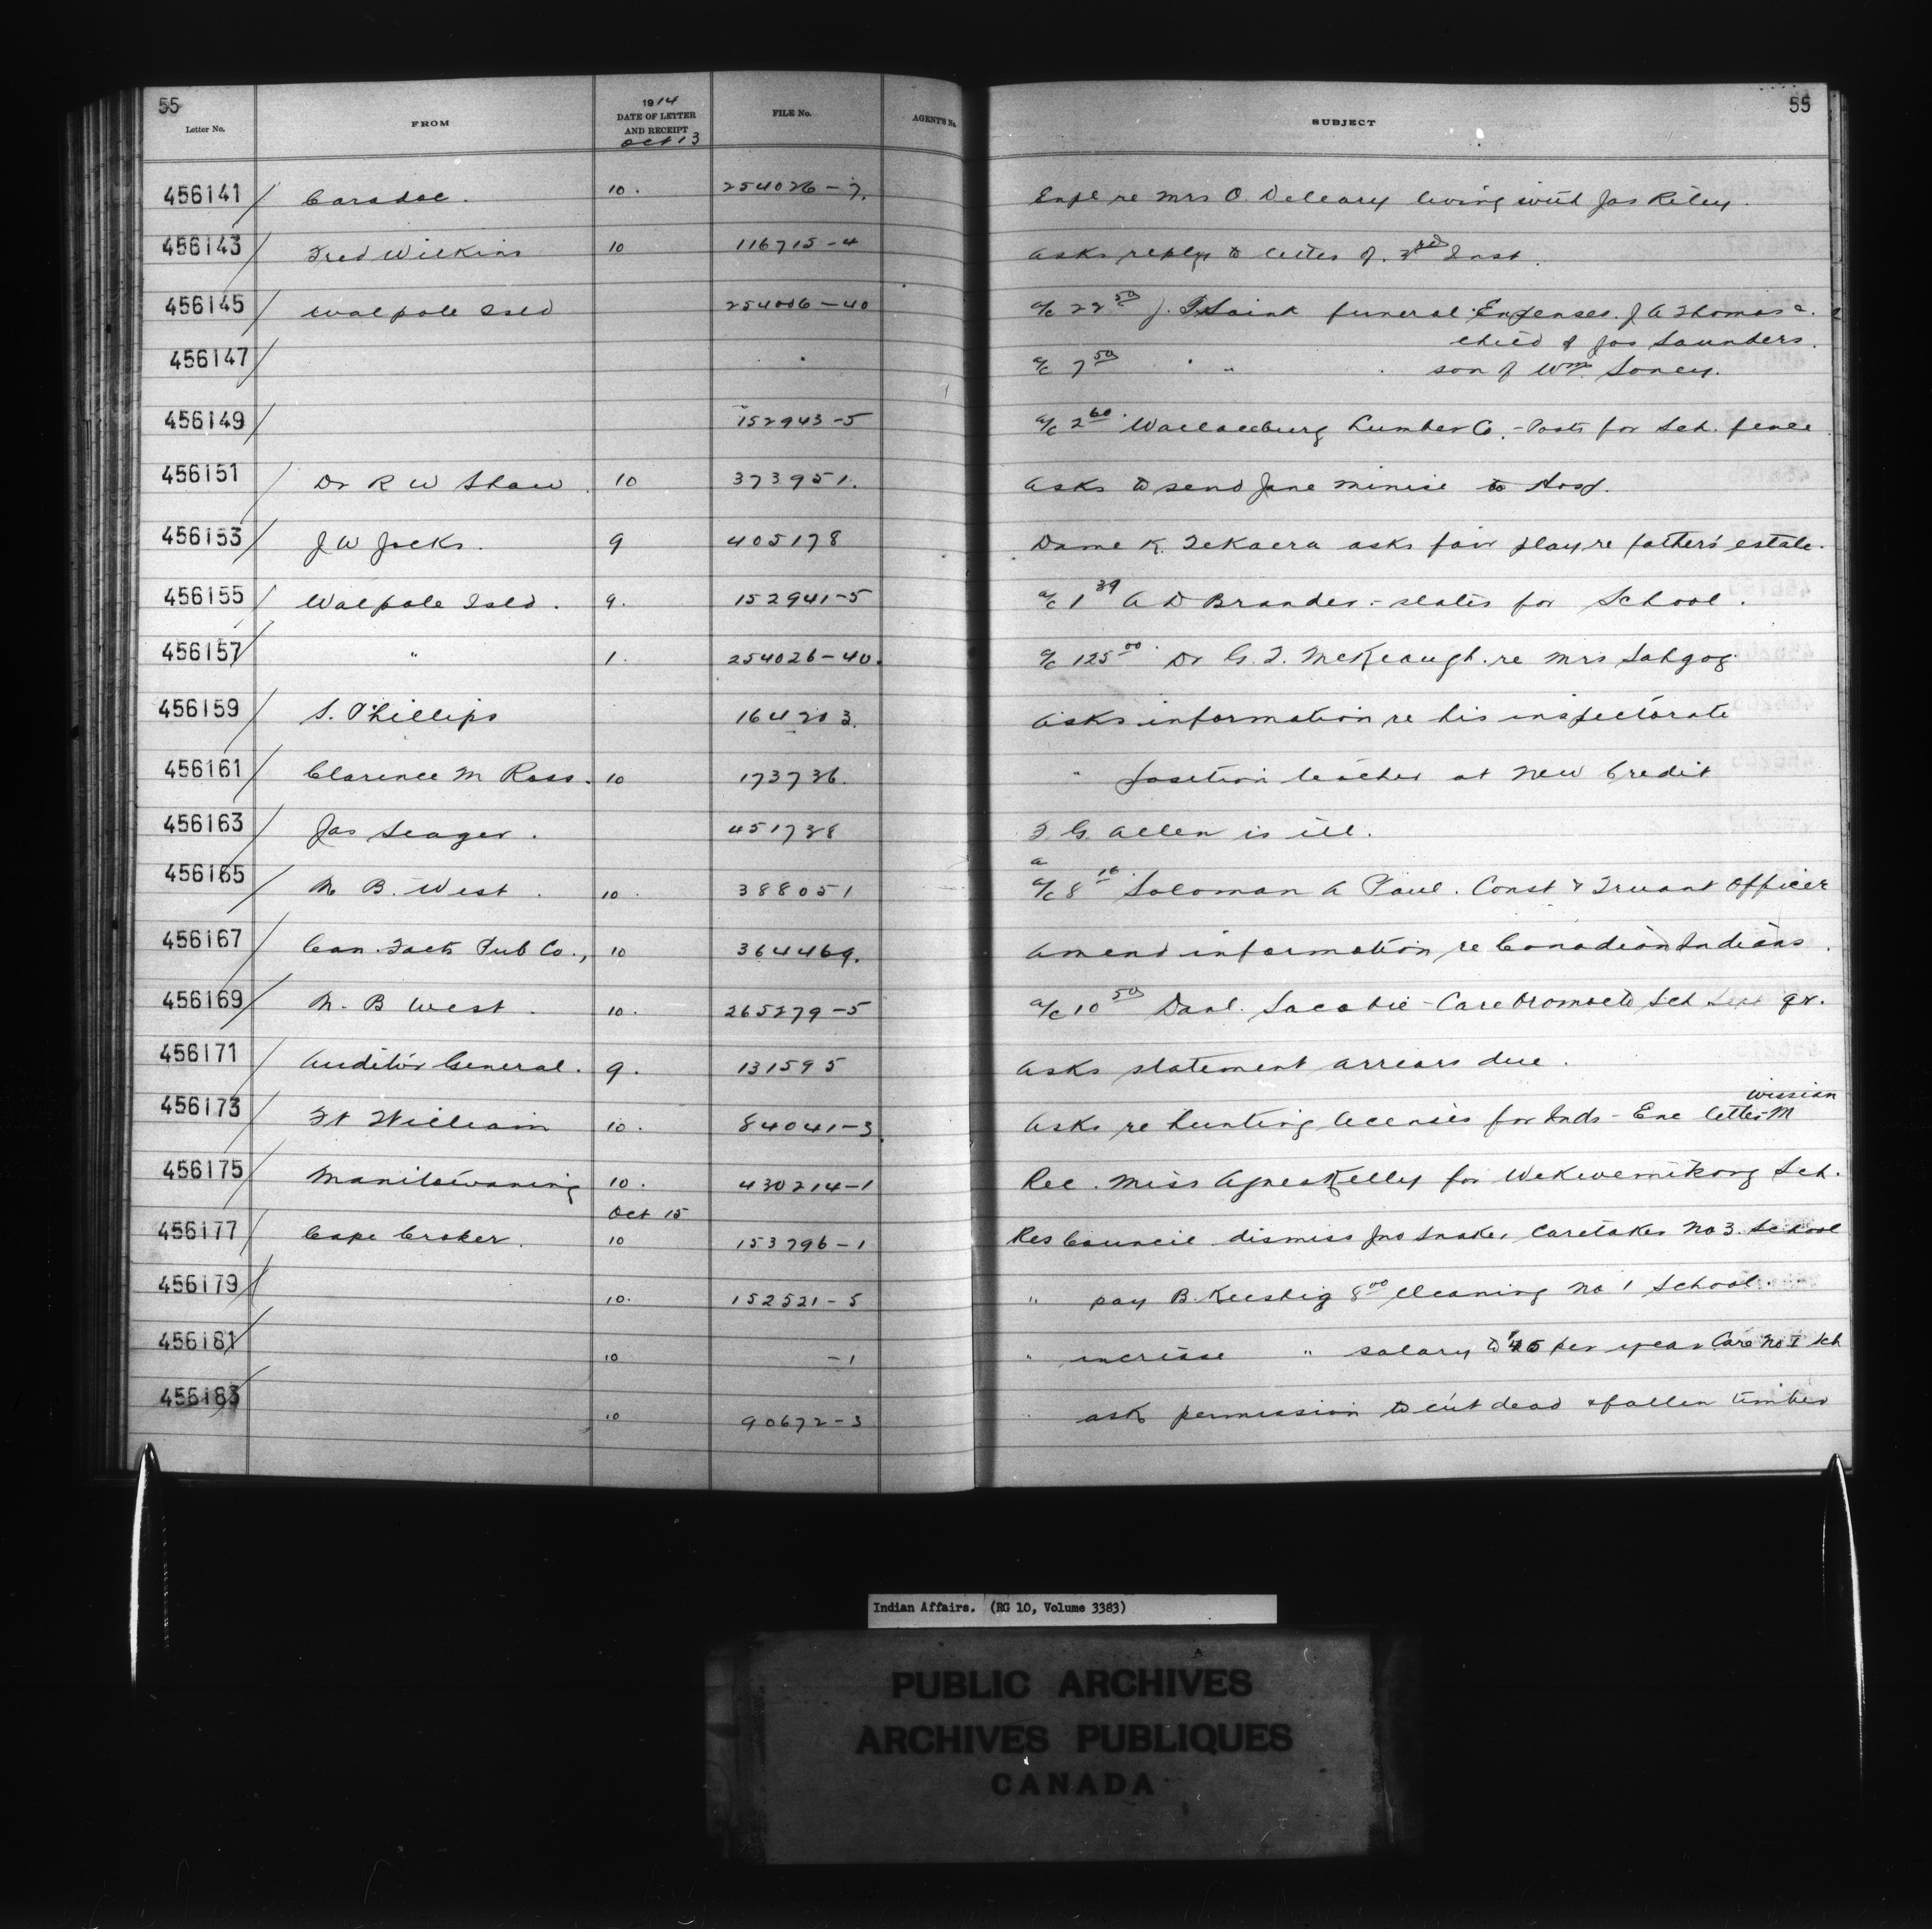 55
1914
Letter No. FROM DATE OF LETTER AND RECEIPT FILE No. AGENT'S No. SUBJECT 55
Oct 13
456141 Caradoc. 10. 254026-7. Expl re Mrs O. Deleary living with Jas Riley.
456143 Fred Wilkins 10 116715-4 Asks reply to letter of 3rd Inst.
456145 Walpole Isld 254006-40 a/c 22 50 J. funeral Expenses. J A Thomas
child of Jos Saunders.
456147 " a/c 7 50 " " " son of Wm Soney.
456149 152943-5 a/c 2 60 Wallaceburg Lumber Co. - Posts for Sch. fence
456151 Dr R W Shaw. 10 373951. Asks to send Jane to Hosp.
456153 J W Jocks. 9 405178 Dame K. TeKaera asks fair play re father's estate.
456155 Walpole Isld. 9. 152941-5 a/c 1 39 A D Brander - slates for School.
456157 " 1. 254026-40. a/c 125 00 Dr G. T. McKeough. re Mrs Sahgog
456159 S. Phillips 164203. Asks information re his inspectorate
456161 Clarence M Ross. 10 173736. " position teacher at New Credit
456163 Jas Seager. 451738 F. G. Allen is ill.
a
456165 N B. West. 10. 388051 a/c 8 16 Soloman A Paul. Const & Truant Officer
456167 Can. Facts Pub Co., 10 364469. Amend information re Canadian Indians.
456169 N. B West. 10. 265279-5 a/c 10 50 Danl. Sacobie - Care Oromocto Sch qr.
456171 Auditor General. 9. 131595 Asks statement arrears due.
wissian
456173 Ft William 10. 84041-3. Asks re hunting licenses for Inds - Enc letter M
456175 Manitowaning 10. 430214-1 Rec. Miss Agnes Kelly for Wekwemikong Sch.
Oct 15
456177 Cape Croker. 10 153796-1 Res Council dismiss Jno Snake, Caretaker No 3. School
456179 10. 152521-5 " pay B. Keeshig 8 00 cleaning No 1 School.
456181 10 -1 " increase " salary to $45 per year Care No 1 Sch
456183 10 90672-3 " ask permission to cut dead & fallen timber
Indian Affairs. (RG 10, Volume 3383)
PUBLIC ARCHIVES
ARCHIVES PUBLIQUES
CANADA